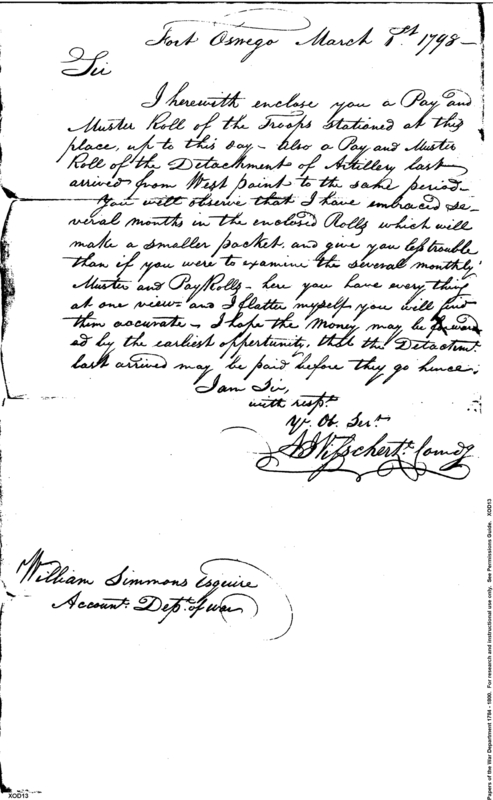 Fort Oswego March 1st. 1798 —
Sir
I herewith enclose you a Pay and
Muster Roll of the Troops stationed at this
place, up to this day – also a Pay and Muster
Roll of the Detachment of Artillery last
arrived from West point to the same period –
You will observe that I have embraced se-
veral months in the enclosed Rolls which will
make a smaller packet, and give you less trouble
than if you were to examine the several monthly
Muster and Pay Rolls – here you have every thing
at one view – and I flatter myself you will find
them accurate – I hope the Money may be forward
ed by the earliest oppertunity, that the Detachmt.
last arrived may be paid before they go hence.
I am Sir,
with respt.
Yr. Ob. Sert.
Visscher Lt. Comdg
William Simmons Esquire
Account. Dept. of war
XOD13
Papers of the War Department 1784 - 1800. For research and instructional use only. See Permissions Guide. XOD13